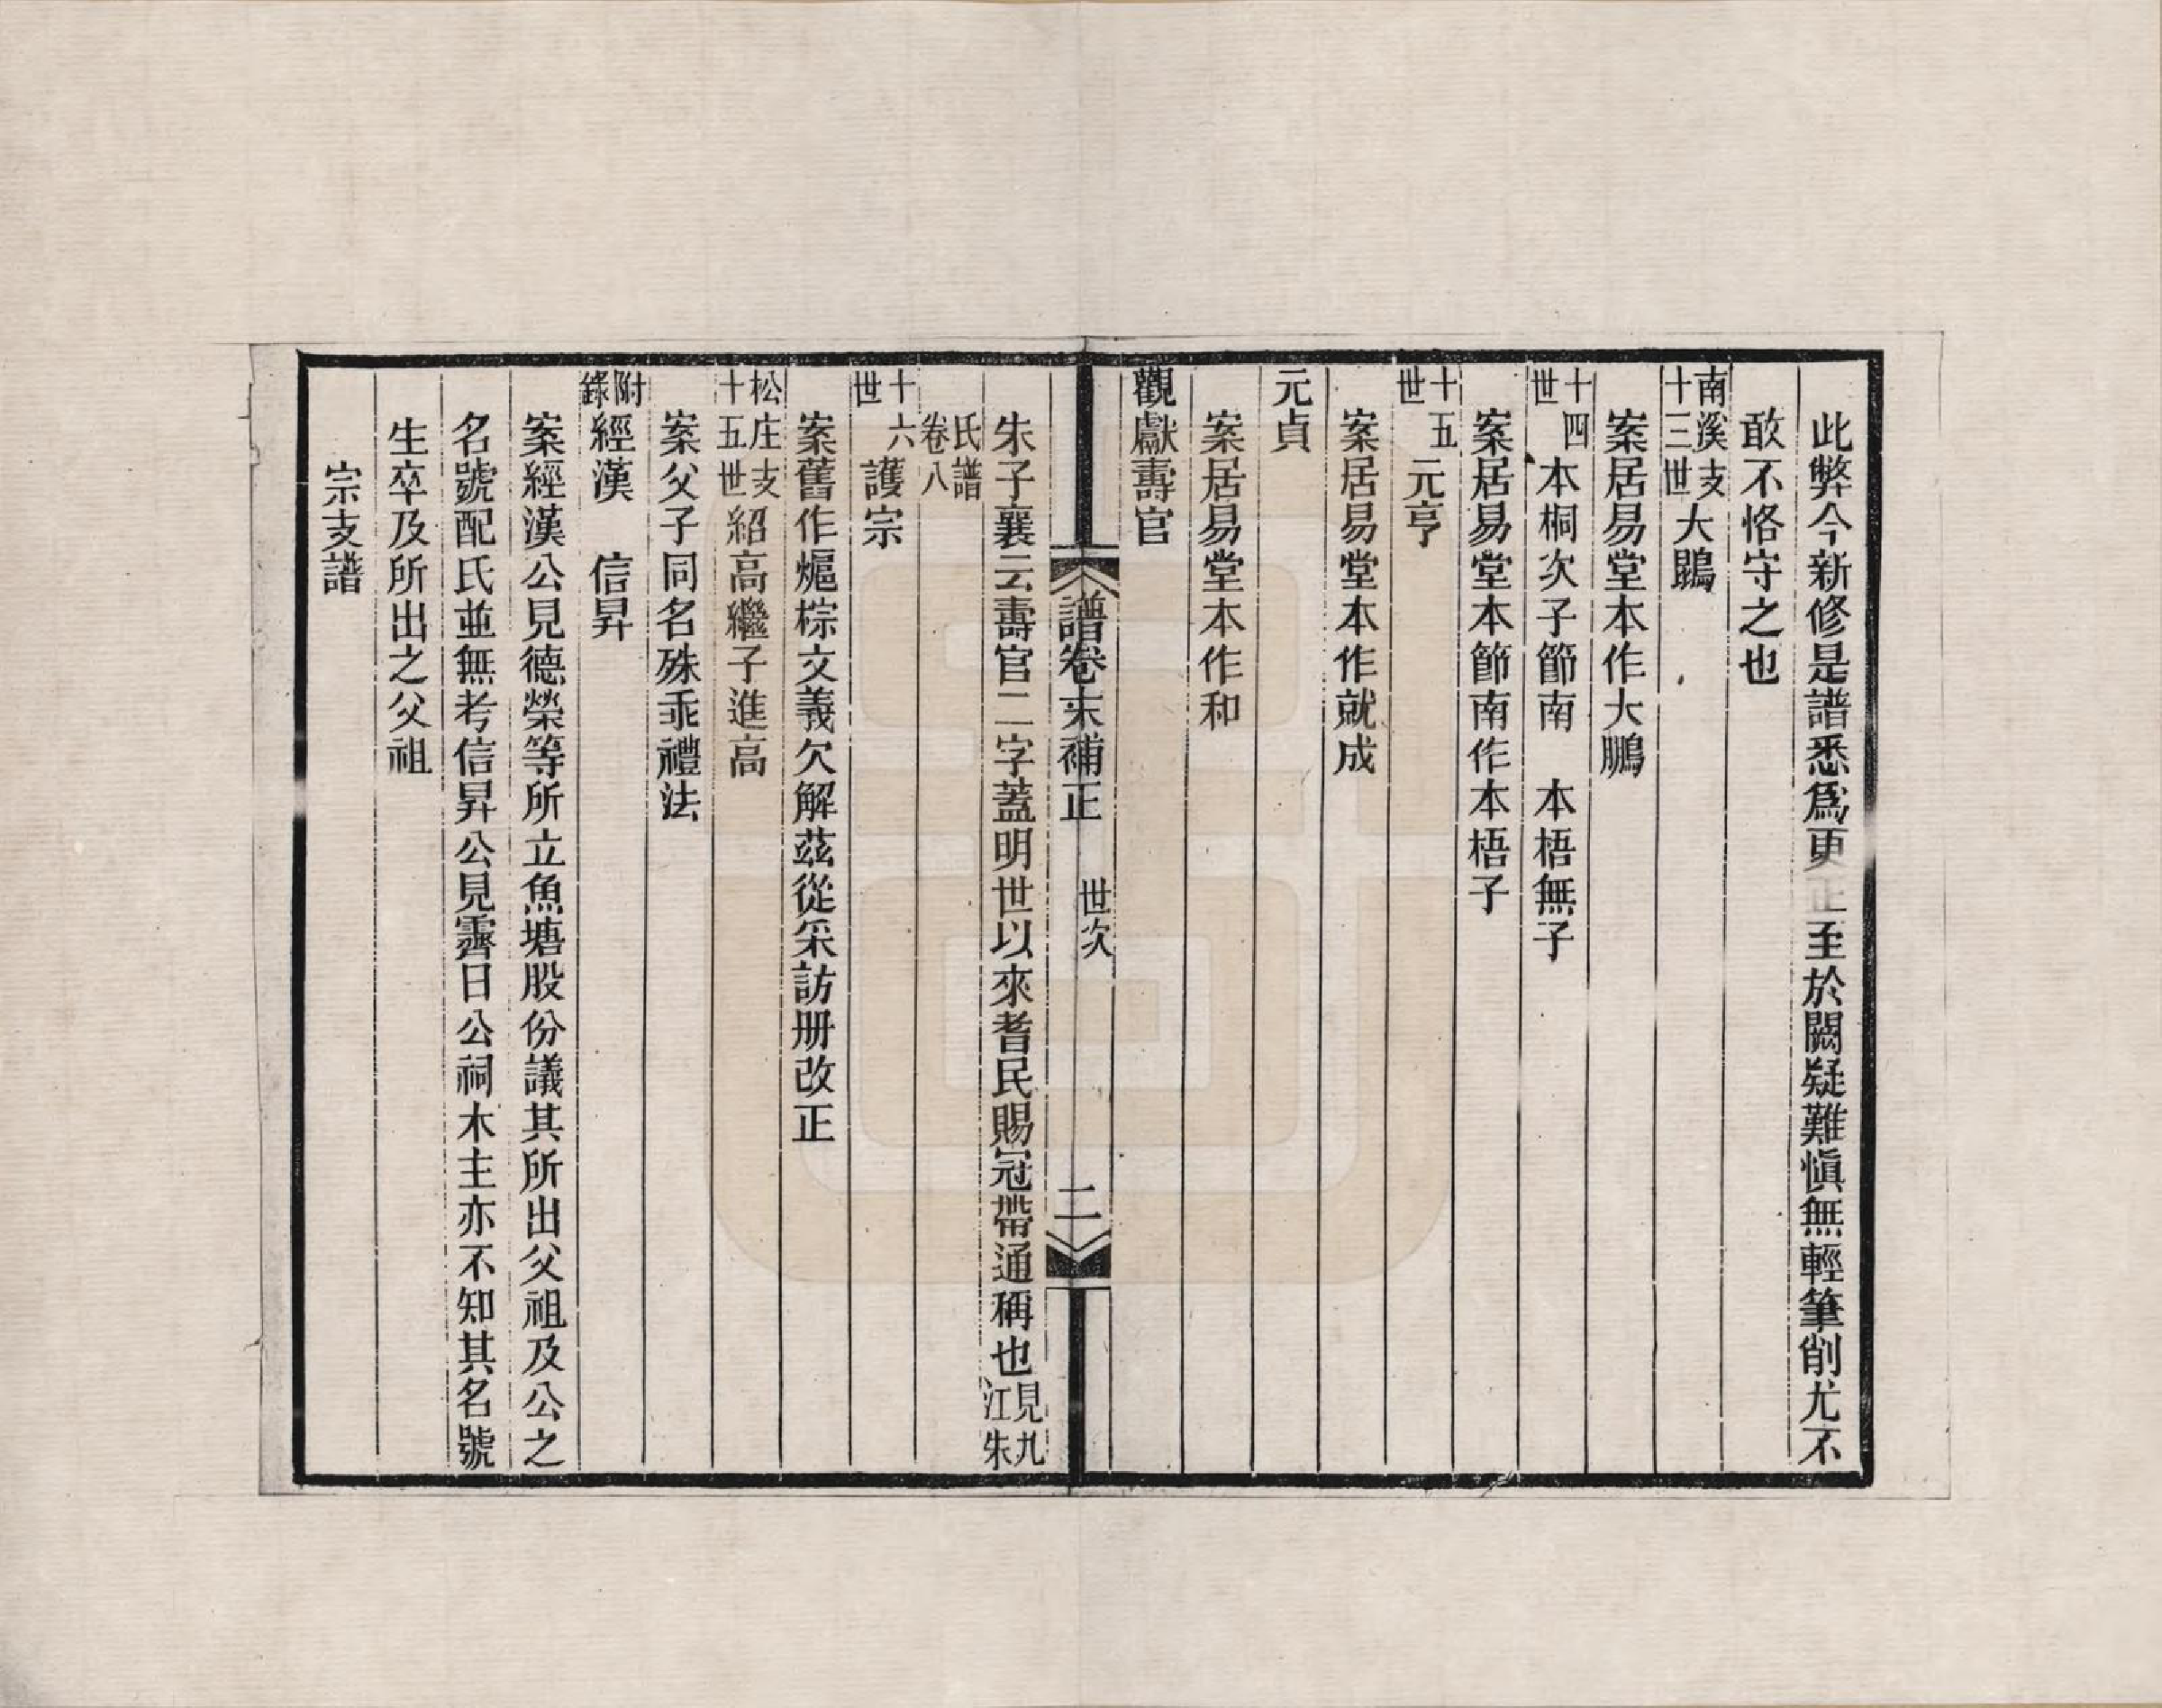 此弊今新修是譜悉爲更正至於闕疑難愼無輕筆削尤不
敢不恪守之也
南溪支十三世大鵾
案居易堂本作大鵬
十四世本桐次子節南　本梧無子
案居易堂本節南作本梧子
十五世元亨
案居易堂本作就成
元貞
案居易堂本作和
觀獻壽官
譜卷末補正　世次　二
朱子襄云壽官二字蓋明世以來耆民賜冠帶通稱也見九江朱
氏譜卷八
十六世護宗
案舊作熰棕文義欠解茲從采訪册改正
松庄支十五世紹高繼子進高
案父子同名殊乖禮法
附錄經漢　信昇
案經漢公見德榮等所立魚塘股份議其所出父祖及公之
名號配氏並無考信昇公見霽日公祠木主亦不知其名號
生卒及所出之父祖
宗支譜